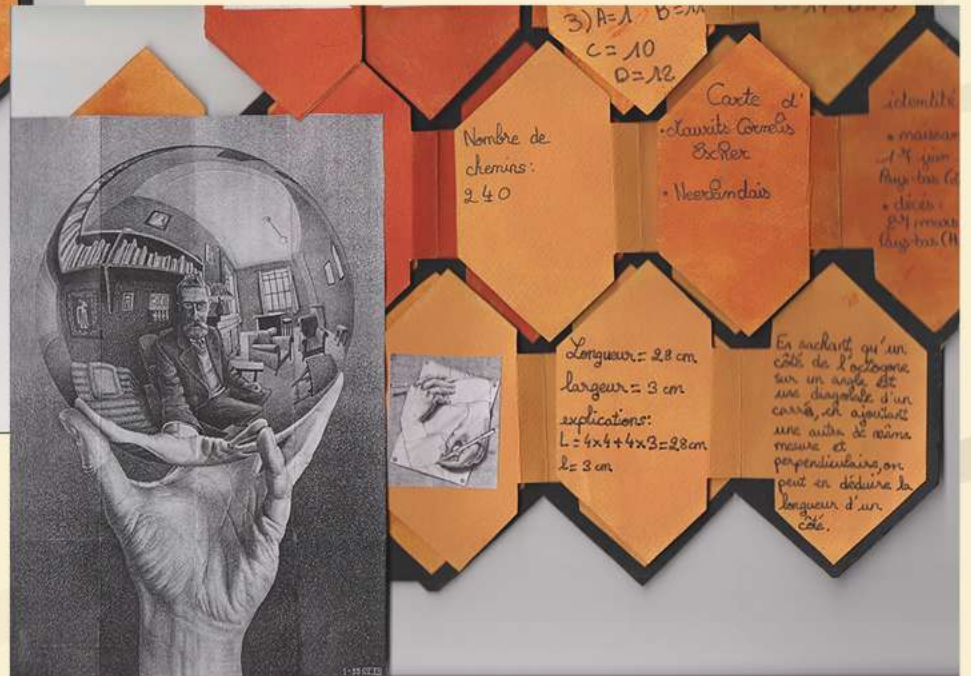 3) A=1 B=11
C = 10
D=12
Nombre de
chemins:
240
Carte d'
• Maurits Cornelis
Escher
• Neerlandais
identité
• naissan
17 juin
Pays-bas
• décès:
27 mars
Pays-bas
Longueur = 28 cm
largeur = 3 cm
explications:
L = 4x4+4x3=28cm
l = 3 cm
En sachant qu'un
côté de l'octogone
sur un angle est
une diagonale d'un
carré, en ajoutant
une autre de même
mesure et
perpendiculaire, on
peut en déduire la
longueur d'un
côté.